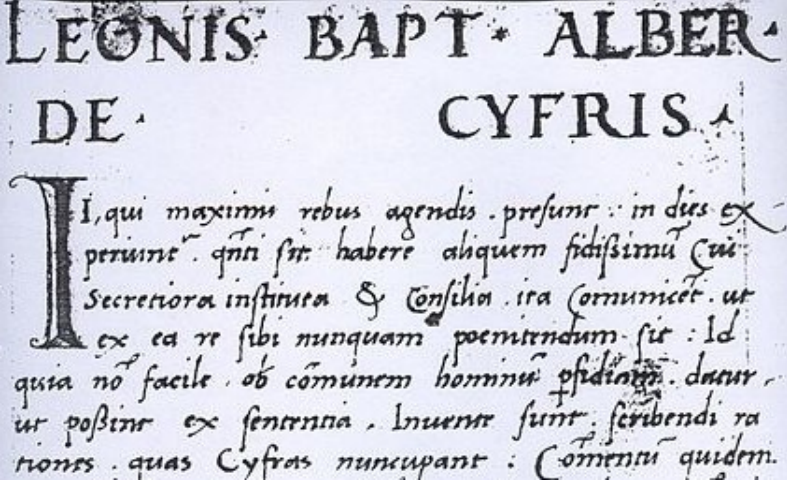 LEONIS· BAPT· ALBER·
DE· CYFRIS·
II, qui maximis rebus agendis . presunt : in dies ex
periunt᷒ . qn̄ti sit habere aliquem fidißimū Cui
Secretiora instituta & Consilia . ita Comunicet . ut
ex ea re sibi nunquam poenitendum sit : Id
quia nō facile . ob cōmunem hominū ꝑfidiam . datur .
ut poßint ex sententia . Inuente sunt . scribendi ra
tiones . quas Cyfras nuncupant : Cōmentū quidem .